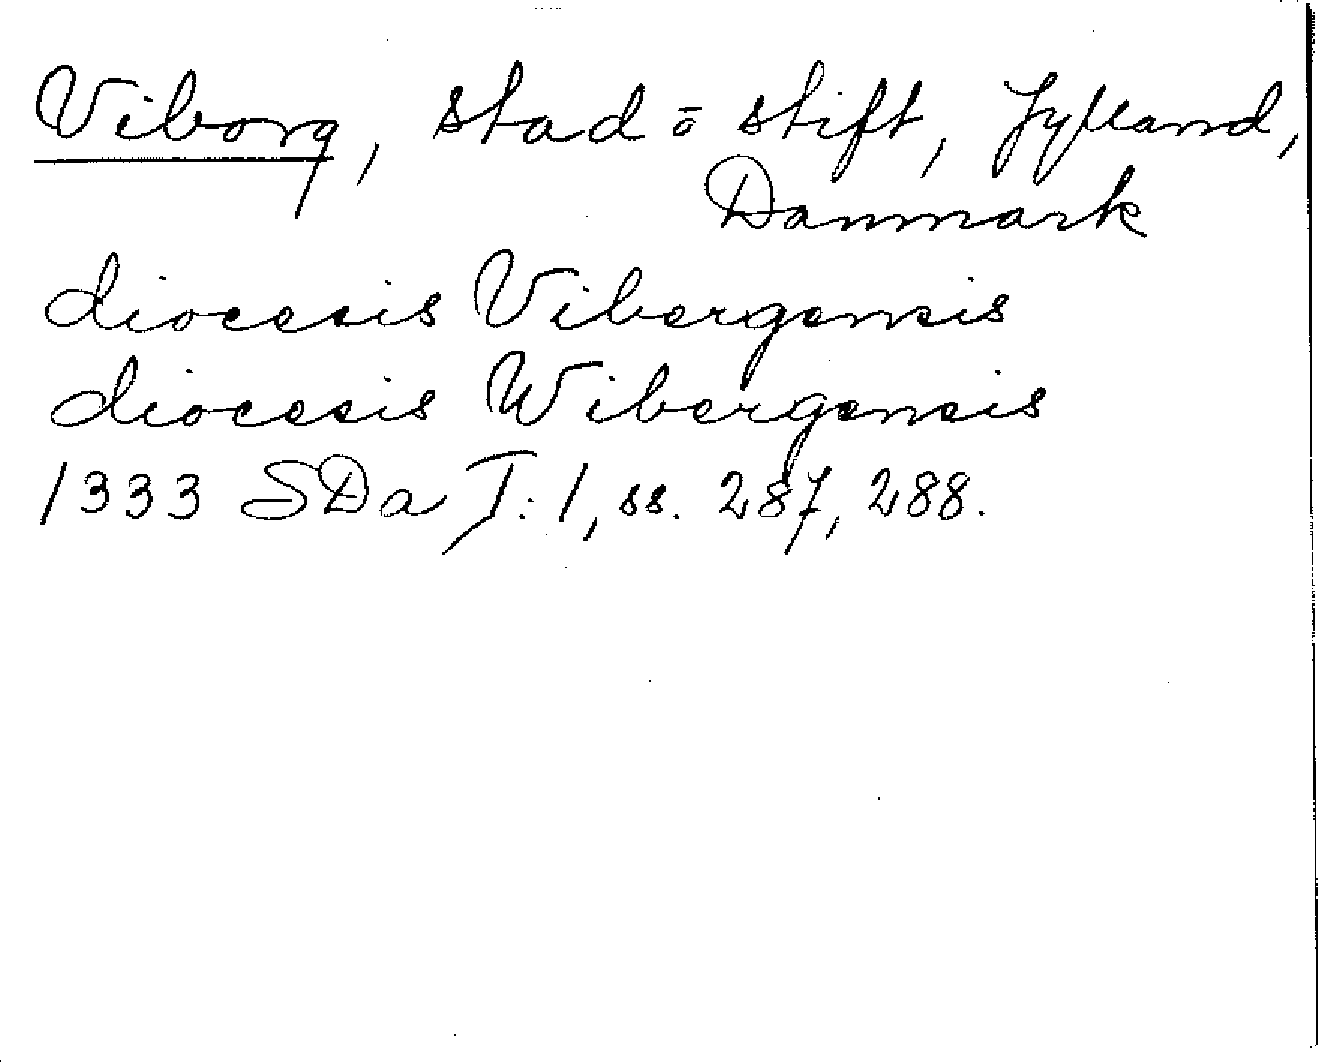 Viborg, stad ō stift, Jylland,
Danmark
diocesis Vibergensis
diocesis Wibergensis
1333 SDa I:1, ss. 287, 288.